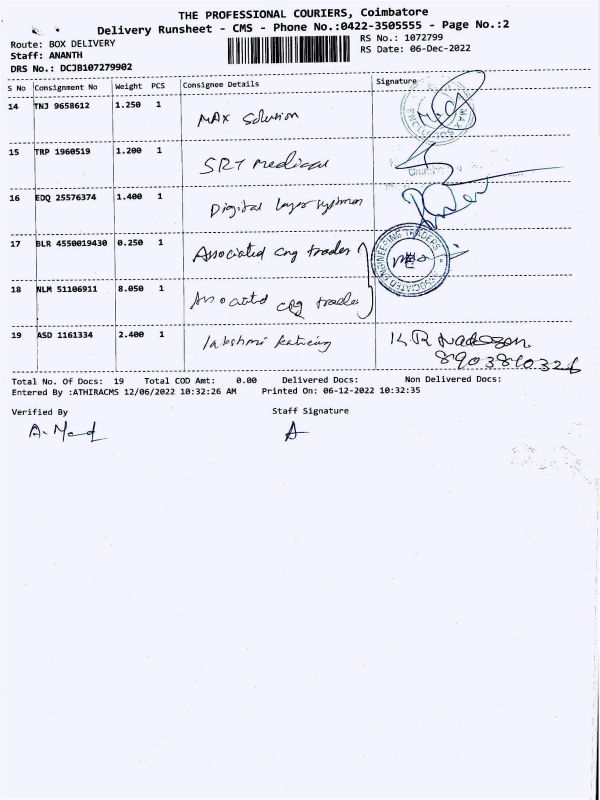 THE PROFESSIONAL COURIERS, Coimbatore
Delivery Runsheet - CMS - Phone No.:0422-3505555 - Page No.:2
Route: BOX DELIVERY
RS No.: 1072799
Staff: ANANTH
RS Date: 06-Dec-2022
DRS No.: DCJB107279902
S No Consignment No Weight PCS Consignee Details Signature
14 TNJ 9658612 1.250 1 MAX Solution
15 TRP 1960519 1.200 1 SRT medical
16 EDQ 25576374 1.400 1 Digital
17 BLR 4550019430 0.250 1 Associated eng trades
ASSOCIATED ENGINEERING TRADERS
18 NLM 51106911 8.050 1 Associated eng trades
19 ASD 1161334 2.400 1 lakshmi
K.R
8903810326
Total No. Of Docs: 19 Total COD Amt: 0.00 Delivered Docs: Non Delivered Docs:
Entered By :ATHIRACMS 12/06/2022 10:32:26 AM Printed On: 06-12-2022 10:32:35
Verified By Staff Signature
A